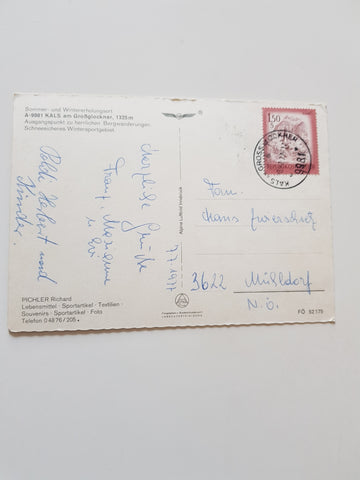 Sommer- und Wintererholungsort
A-9981 KALS am Großglockner, 1325 m
Ausgangspunkt zu herrlichen Bergwanderungen.
Schneesicheres Wintersportgebiet.
Herzliche Grüße
Franz, Marianne
u.
7.7.1977
Herbert und
Kinder.
PICHLER Richard
Lebensmittel · Sportartikel · Textilien ·
Souvenirs · Sportartikel · Foto
Telefon 0 48 76 / 205
Alpine Luftbild Innsbruck
1.50
GROSSGLOCKNER
KALS
Fam.
Hans
3622 Mühldorf
N.Ö.
FÖ 52 175